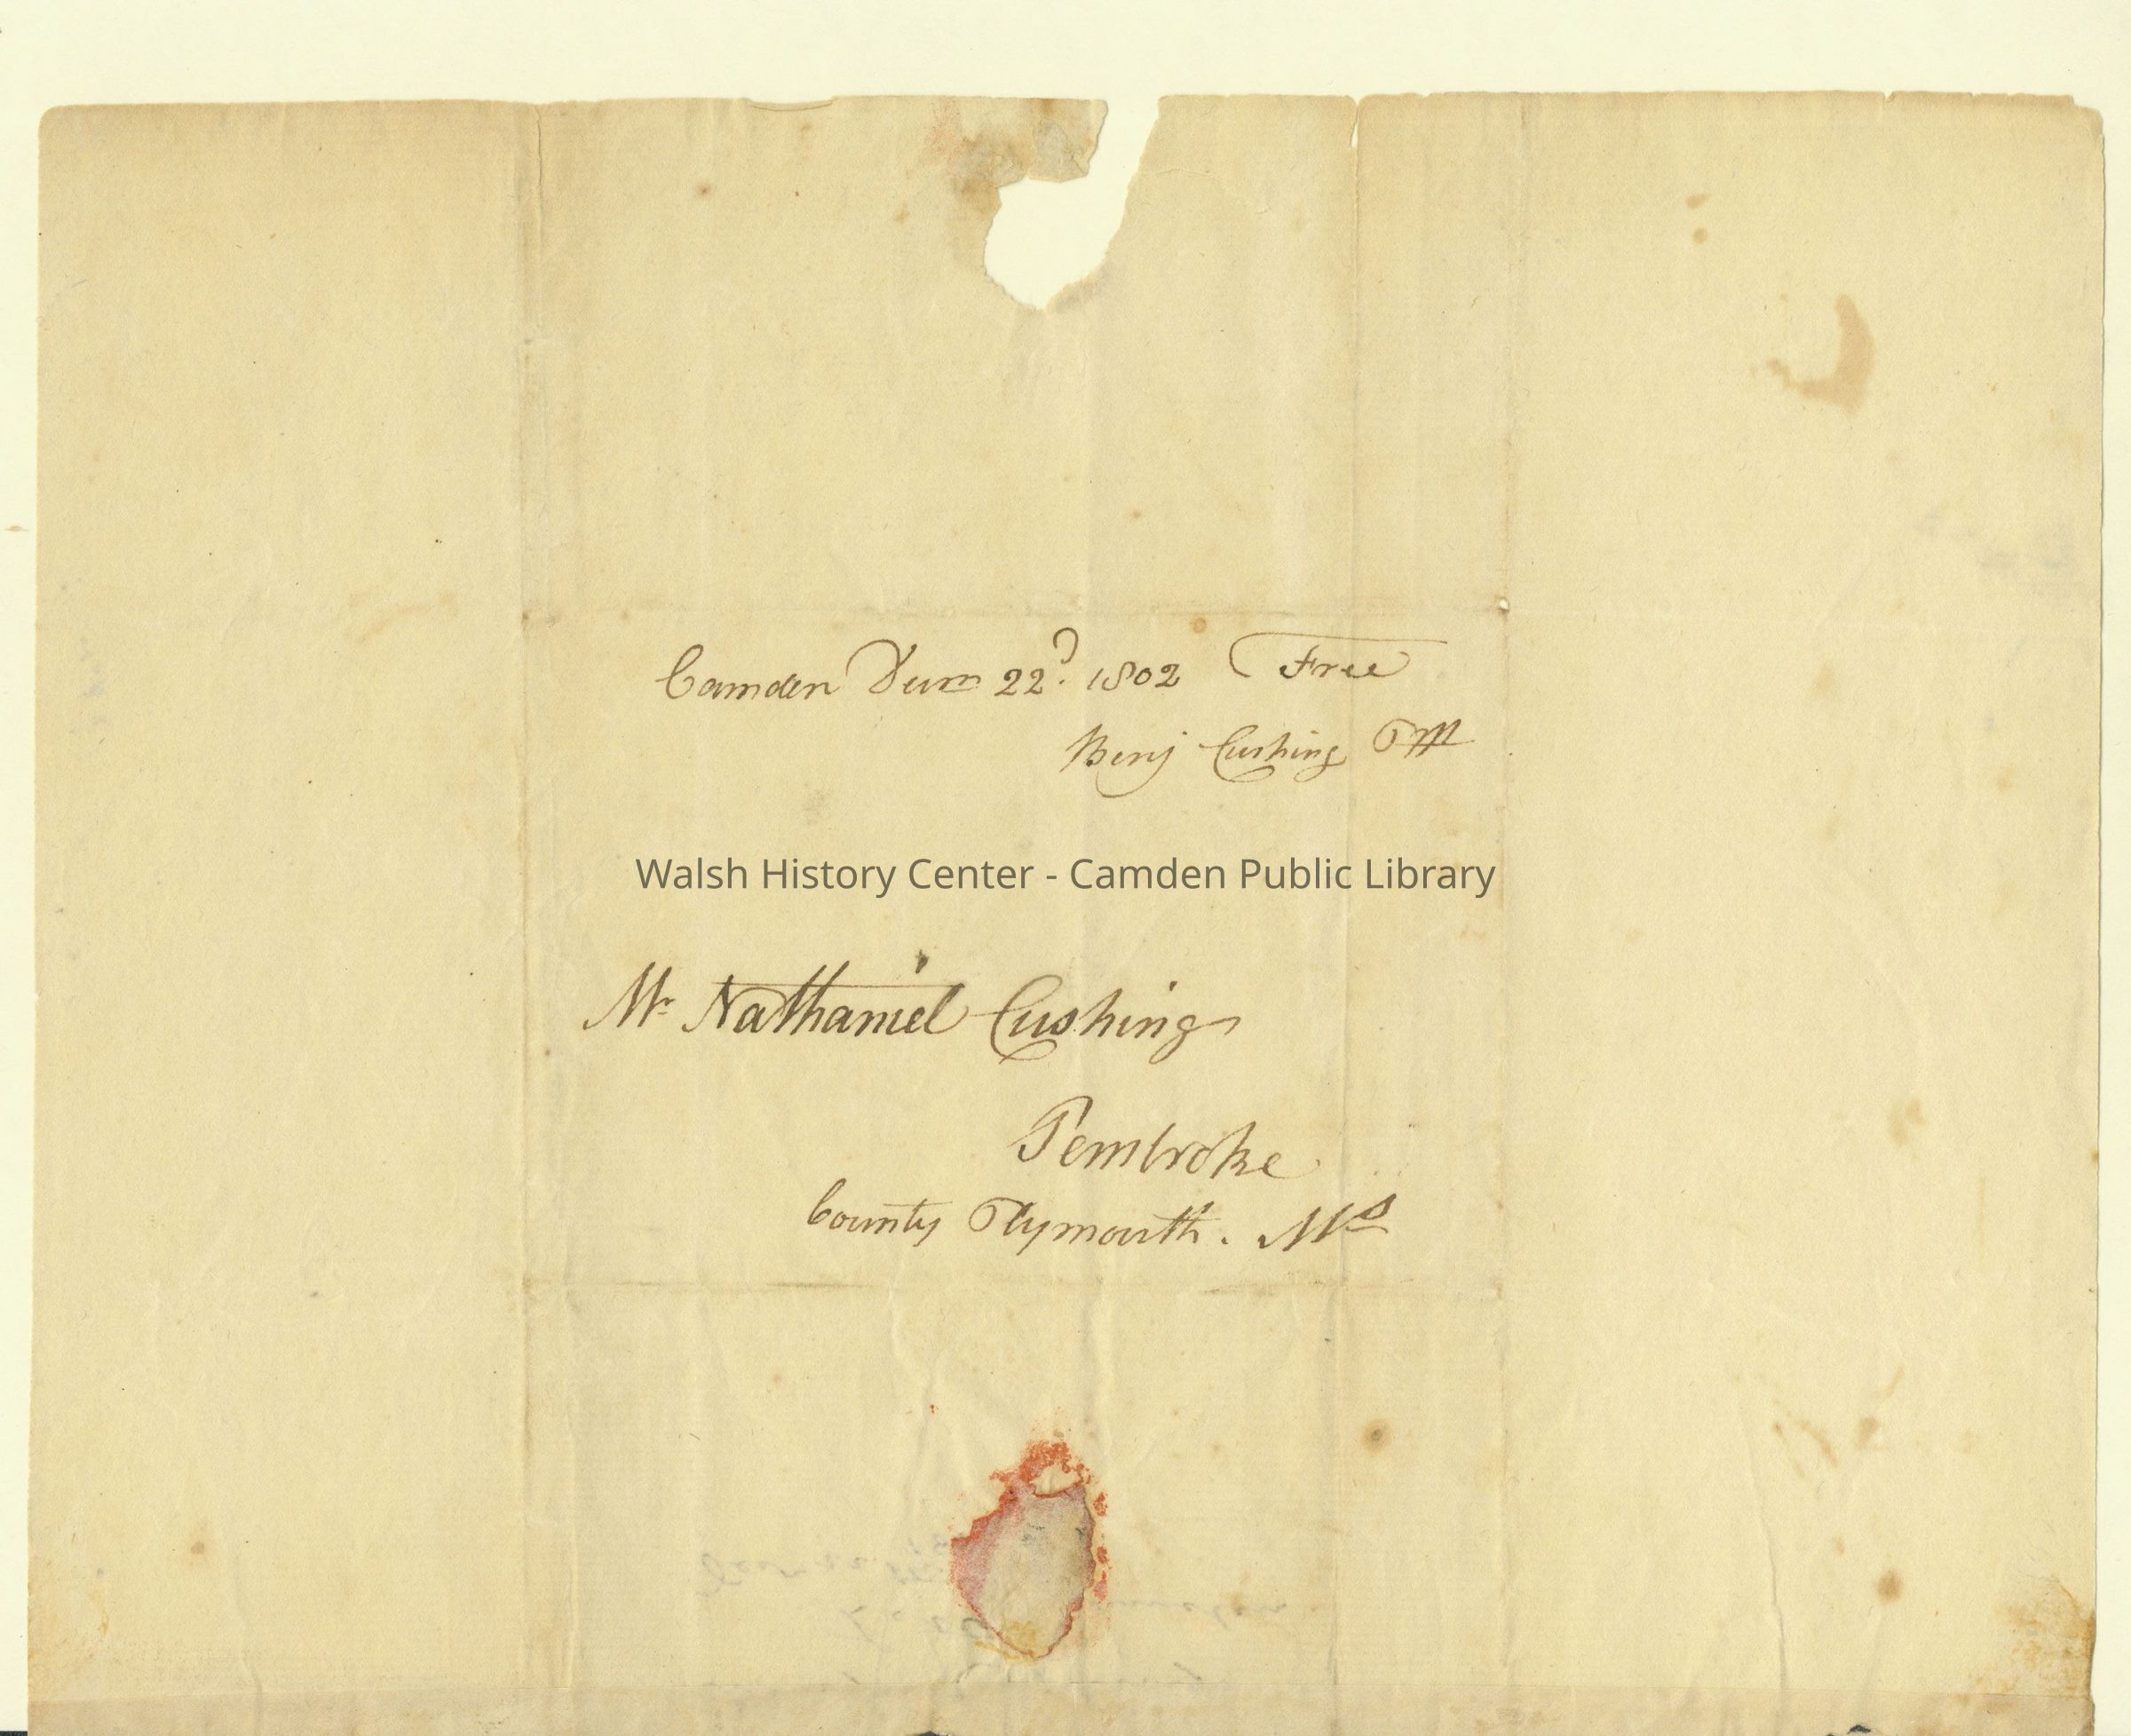 Camden 22d. 1802 Free
Benj Cushing PM
Walsh History Center - Camden Public Library
Mr Nathaniel Cushing
Pembroke
County Plymouth. Ms